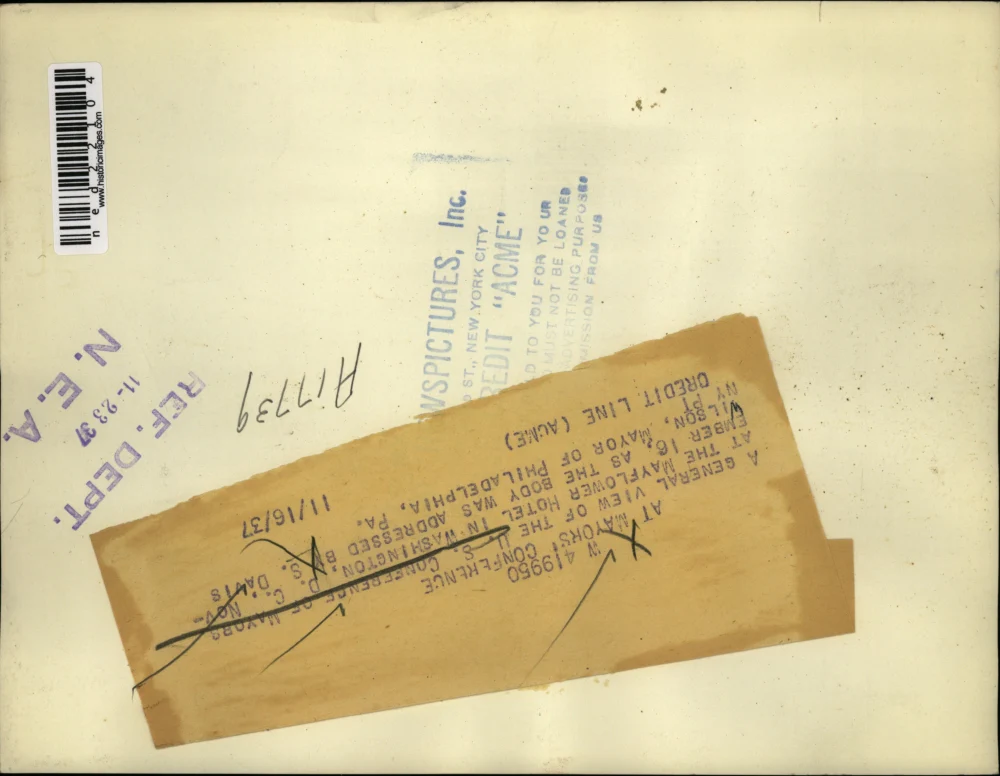 ned22104
www.historicimages.com
WSPICTURES, Inc.
ST., NEW YORK CITY
REDIT "ACME"
D TO YOU FOR YOUR
MUST NOT BE LOANED
DVERTISING PURPOSES
MISSION FROM US
REF. DEPT.
11-23 37
N. E. A.
A17739
W 419950
AT MAYORS' CONFERENCE
A GENERAL VIEW OF THE U. S. CONFERENCE OF MAYORS
AT THE MAYFLOWER HOTEL IN WASHINGTON, D. C. NOV-
EMBER 16, AS THE BODY WAS ADDRESSED BY S. DAVIS
WILSON, MAYOR OF PHILADELPHIA, PA.
NY PI
CREDIT LINE (ACME) 11/16/37